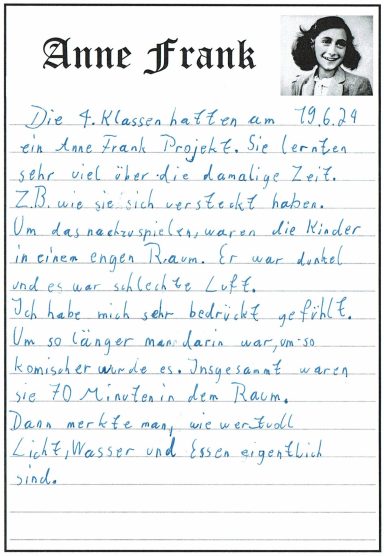 Anne Frank
Die 4. Klassen hatten am 19.6.24
ein Anne Frank Projekt. Sie lernten
sehr viel über die damalige Zeit.
Z.B. wie sie sich versteckt haben.
Um das nachzuspielen, waren die Kinder
in einem engen Raum. Er war dunkel
und es war schlechte Luft.
Ich habe mich sehr bedrückt gefühlt.
Um so länger man darin war, um so
komischer wurde es. Insgesamt waren
sie 70 Minuten in dem Raum.
Dann merkte man, wie wertvoll
Licht, Wasser und Essen eigentlich
sind.